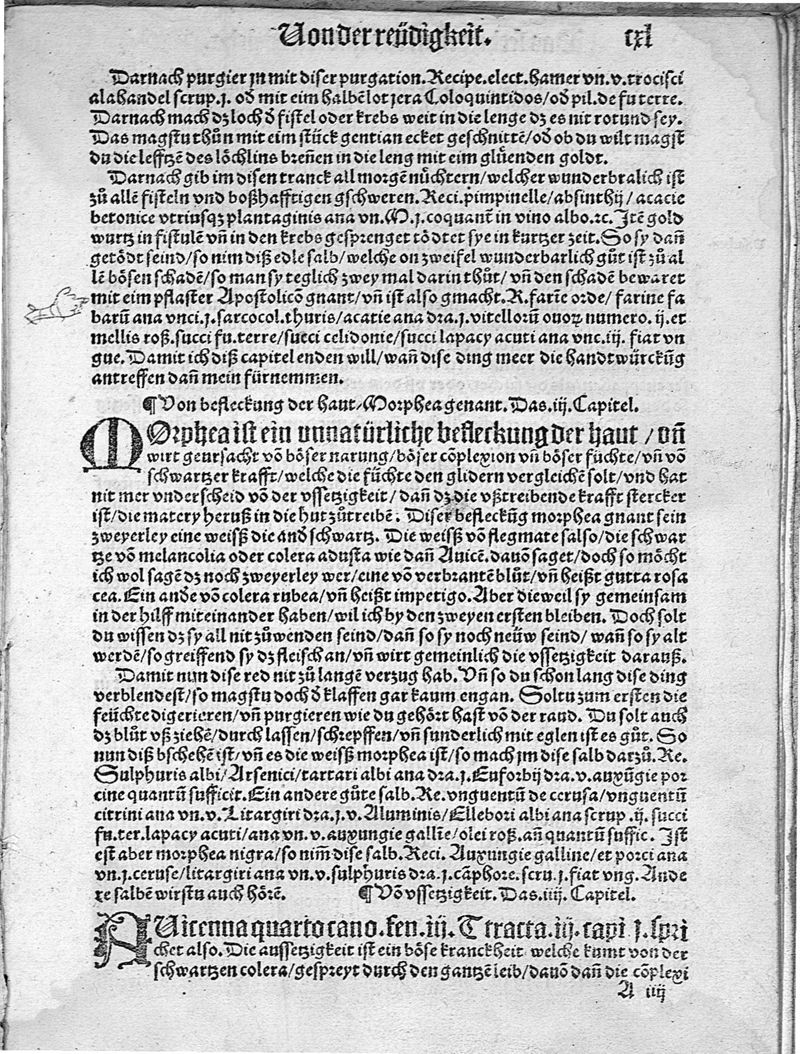 Von der reüdigkeit. cxl
Darnach purgier jn mit diser purgation. Recipe. elect. hamer vn. v. trocisci
alahandel scrup. j. od̕ mit eim halbẽ lot jera Coloquintidos/od̕ pil. de fu terre.
Darnach mach dz loch d̕ fistel oder krebs weit in die lenge dz es nit rotund sey.
Das magstu thůn mit eim stück gentian ecket geschnittẽ/od̕ ob du wilt magst
du die lefftzẽ des löchlins breñen in die leng mit eim glüenden goldt.
Darnach gib im disen tranck all morgẽ nüchtern/welcher wunderbralich ist
zů allẽ fisteln vnd boßhafftigen gschweren. Reci. pimpinelle/absinthij/acacie
betonice vtriusqz plantaginis ana vn. M. j. coquant̃ in vino albo. ꝛc. Jtẽ gold
wurtz in fistulẽ vñ in den krebs gesprenget tödtet sye in kurtzer zeit. So sy dañ
getödt seind/so nim diß edle salb/welche on zweifel wunderbarlich gůt ist zů al
lẽ bösen schadẽ/so man sy teglich zwey mal darin thůt/vñ den schadẽ bewaret
mit eim pflaster Apostolicõ gnant/vñ ist also gmacht. R. farĩe orde/farine fa
barũ ana vnci. j. sarcocol. thuris/acatie ana dra. j. vitellorũ ouoꝝ numero. ij. et
mellis roß. succi fu. terre/succi celidonie/succi lapacy acuti ana vnc. iij. fiat vn
gue. Damit ich diß capitel enden will/wañ dise ding meer die handtwürckũg
antreffen dañ mein fürnemmen.
¶ Von befleckung der haut/Morphea genant. Das. iij. Capitel.
MOrphea ist ein vnnatürliche befleckung der haut/vñ
wirt geursacht võ böser narung/böser cõplexion vñ böser füchte/vñ võ
schwartzer krafft/welche die füchte den glidern vergleichẽ solt/vnd hat
nit mer vnderscheid võ der vssetzigkeit/dañ dz die vßtreibende krafft stercker
ist/die matery heruß in die hut zůtreibẽ. Diser befleckũg morphea gnant sein
zweyerley eine weiß die and̕ schwartz. Die weiß võ flegmate salso/die schwar
tze võ melancolia oder colera adusta wie dañ Auicẽ. dauõ saget/doch so möcht
ich wol sagẽ dz noch zweyerley wer/eine võ verbrantẽ blůt/vñ heißt gutta rosa
cea. Ein and̕e võ colera rubea/vñ heißt impetigo. Aber dieweil sy gemeinsam
in der hilff miteinander haben/wil ich by den zweyen ersten bleiben. Doch solt
du wissen dz sy all nit zůwenden seind/dañ so sy noch neüw seind/wañ so sy alt
werdẽ/so greiffend sy dz fleisch an/vñ wirt gemeinlich die vssetzigkeit darauß.
Damit nun dise red nit zů langẽ verzug hab. Vñ so du schon lang dise ding
verblendest/so magstu doch d̕ klaffen gar kaum engan. Soltu zum ersten die
feüchte digerieren/vñ purgieren wie du gehört hast võ der raud. Du solt auch
dz blůt vß ziehẽ/durch lassen/schrepffen/vñ sunderlich mit eglen ist es gůt. So
nun diß bschehẽ ist/vñ es die weiß morphea ist/so mach jm dise salb darzů. Re.
Sulphuris albi/Arsenici/tartari albi ana dra. j. Euforbij dra. v. auxũgie por
cine quantũ sufficit. Ein andere gůte salb. Re. vnguentũ de cerusa/vnguentũ
citrini ana vn. v. Litargiri dra. j. v. Aluminis/Ellebori albi ana scrup. ij. succi
fu. ter. lapacy acuti/ana vn. v. auxungie gallĩe/olei roß. añ quantũ suffic. Jst
est aber morphea nigra/so nim̃ dise salb. Reci. Auxungie galline/et porci ana
vn. j. ceruse/litargiri ana vn. v. sulphuris dra. j. cãphore. scru. j. fiat vng. Ande
re salbẽ wirstu auch hörẽ. ¶ Võ vssetzigkeit. Das. iiij. Capitel.
AUicenna quarto cano. fen. iij. Ttracta. iij. capi j. spri
chet also. Die aussetzigkeit ist ein böse kranckheit welche kumt von der
schwartzen colera/gespreyt durch den gantzẽ leib/dauõ dañ die cõplexi
A iiij